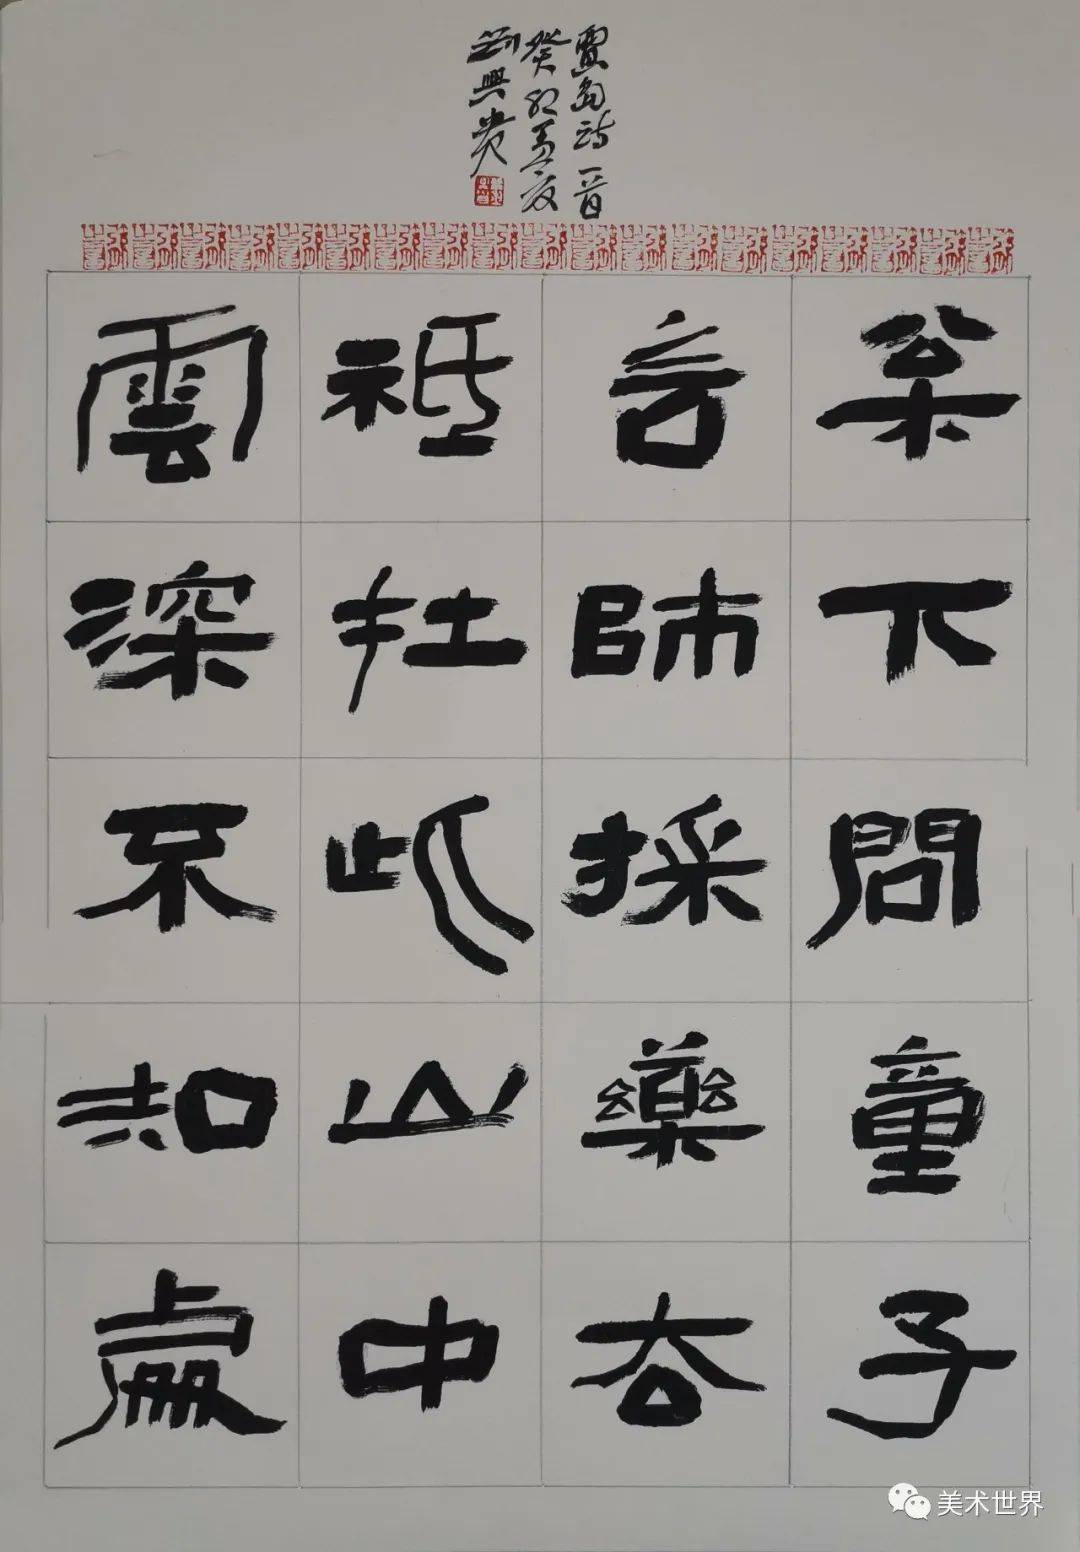 賈島詩一首
癸卯孟夏
劉興貴
枀下問童子
言師採藥去
祗在此山中
雲深不知處
美术世界